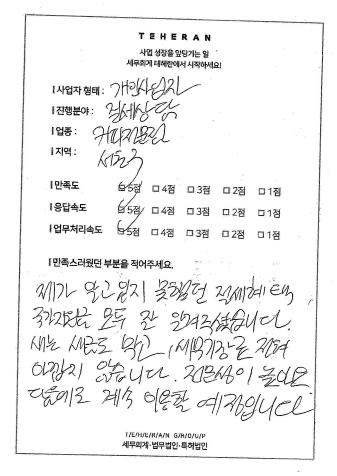 TEHERAN
사업 성장을 앞당기는 일
세무회계 테헤란에서 시작하세요!
사업자 형태 : 개인사업자
진행분야 : 절세상담
업종 : 커피전문점
지역 :
만족도 5점 4점 3점 2점 1점
응답속도 5점 4점 3점 2점 1점
업무처리속도 5점 4점 3점 2점 1점
만족스러웠던 부분을 적어주세요.
제가 알고있지 못했던 절세혜택,
국가지원금 모두 잘 알려주셨습니다.
새는 세금도 막고, 세무기장료 전혀
아깝지 않습니다. 전문성이 높아요
다음에도 계속 이용할 예정입니다
TEHERAN GROUP
세무회계·법무법인·특허법인